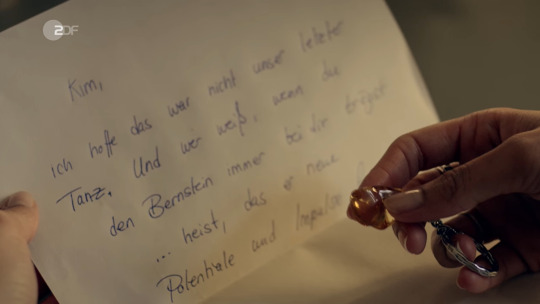 ZDF
Kim,
ich hoffe das war nicht unser letzter
Tanz. Und wer weiß, wenn du
den Bernstein immer bei dir trägst
... heist, das er neue
Potentiale und Impulse